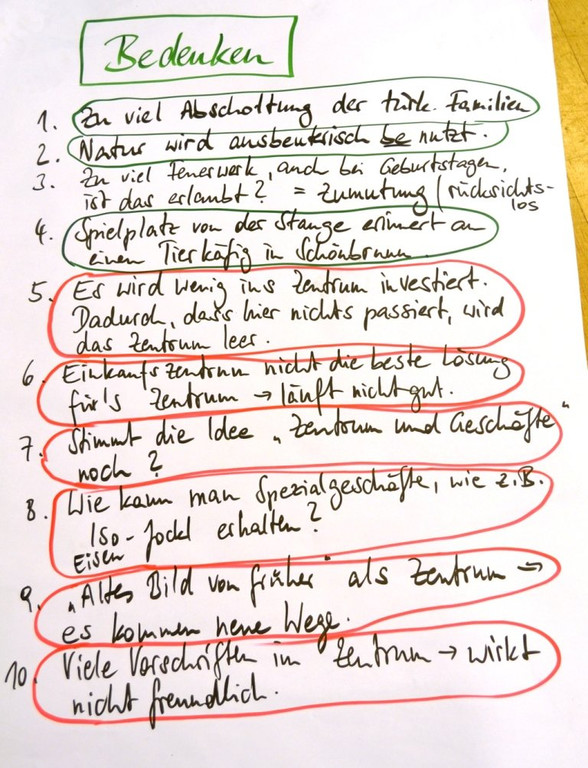 Bedenken
1. Zu viel Abschottung der türk. Familien
2. Natur wird ausbeuterisch be nutzt.
3. Zu viel Feuerwerk, auch bei Geburtstagen,
ist das erlaubt? = Zumutung / rücksichts-
los
4. Spielplatz von der Stange erinnert an
einen Tierkäfig in Schönbrunn.
5. Es wird wenig ins Zentrum investiert.
Dadurch, dass hier nichts passiert, wird
das Zentrum leer.
6. Einkaufszentrum nicht die beste Lösung
für's Zentrum → läuft nicht gut.
7. Stimmt die Idee "Zentrum und Geschäfte"
noch?
8. Wie kann man Spezialgeschäfte, wie z.B.
Iso-Jockl erhalten?
Eisen
9. "Altes Bild von früher" als Zentrum →
es kommen neue Wege.
10. Viele Vorschriften im Zentrum → wirkt
nicht freundlich.